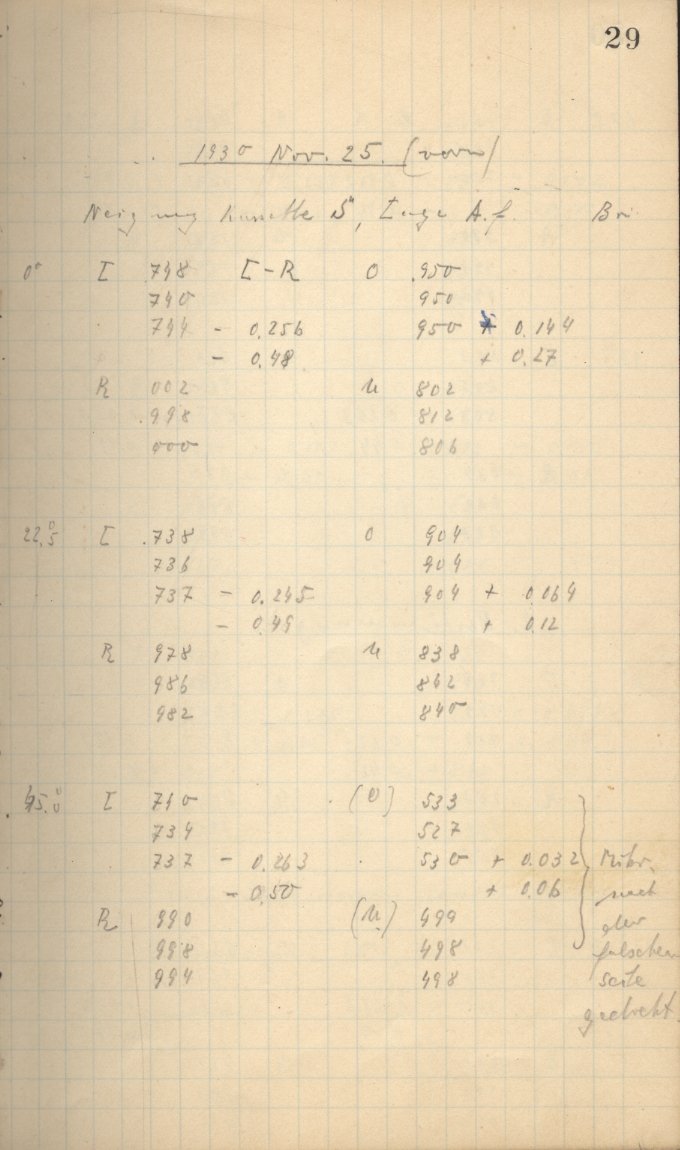 29
1930 Nov. 25. (vorn)
Neigung Kassette S, Lage A.f. Br.
0° L .748 L-R O .950
740 950
744 - 0.256 950 + 0.144
- 0.48 + 0.27
R 002 U 802
.998 812
000 806
22.°5 L .738 O 904
736 904
737 - 0.245 904 + 0.064
- 0.49 + 0.12
R 978 U 838
986 842
982 840
45.°0 L 740 (O) 533
734 527
737 - 0.263 530 + 0.032 Mikr.
- 0.50 + 0.06 nach
R 990 (U) 499 der
998 498 falschen
994 498 Seite
gedreht.